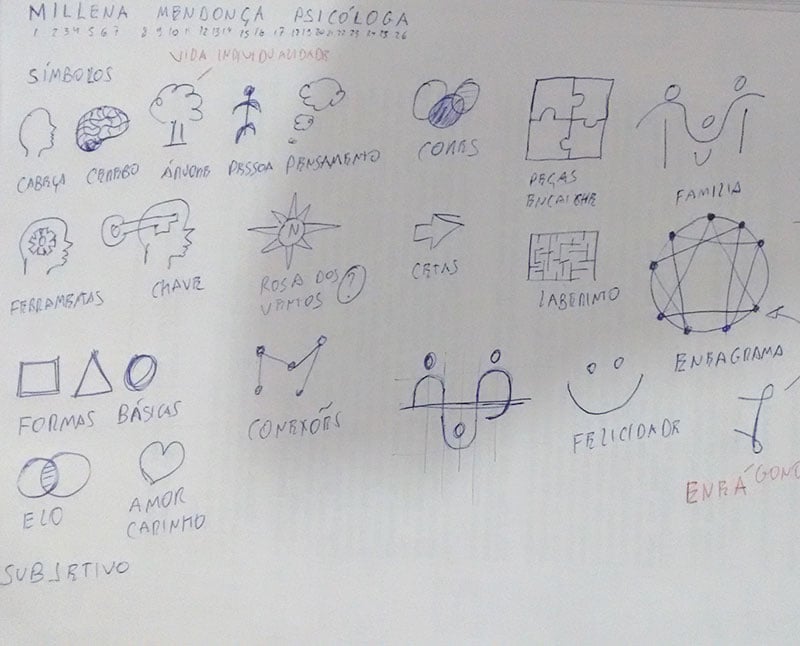 MILLENA MENDONÇA PSICÓLOGA
1 2 3 4 5 6 7 8 9 10 11 12 13 14 15 16 17 18 19 20 21 22 23 24 25 26
VIDA INDIVIDUALIDADE
SÍMBOLOS
CABEÇA CEREBO ÁRVORE PESSOA PENSAMENTO CORES
PEÇAS
ENCAICHE
FAMILIA
N
FERRAMETAS CHAVE
ROSA DOS
VENTOS ?
CETAS
LABERINTO
ENEAGRAMA
FORMAS BÁSICAS
CONEXÕES
FELICIDADE
ENEÁGONO
ELO
AMOR
CARINHO
SUBJETIVO